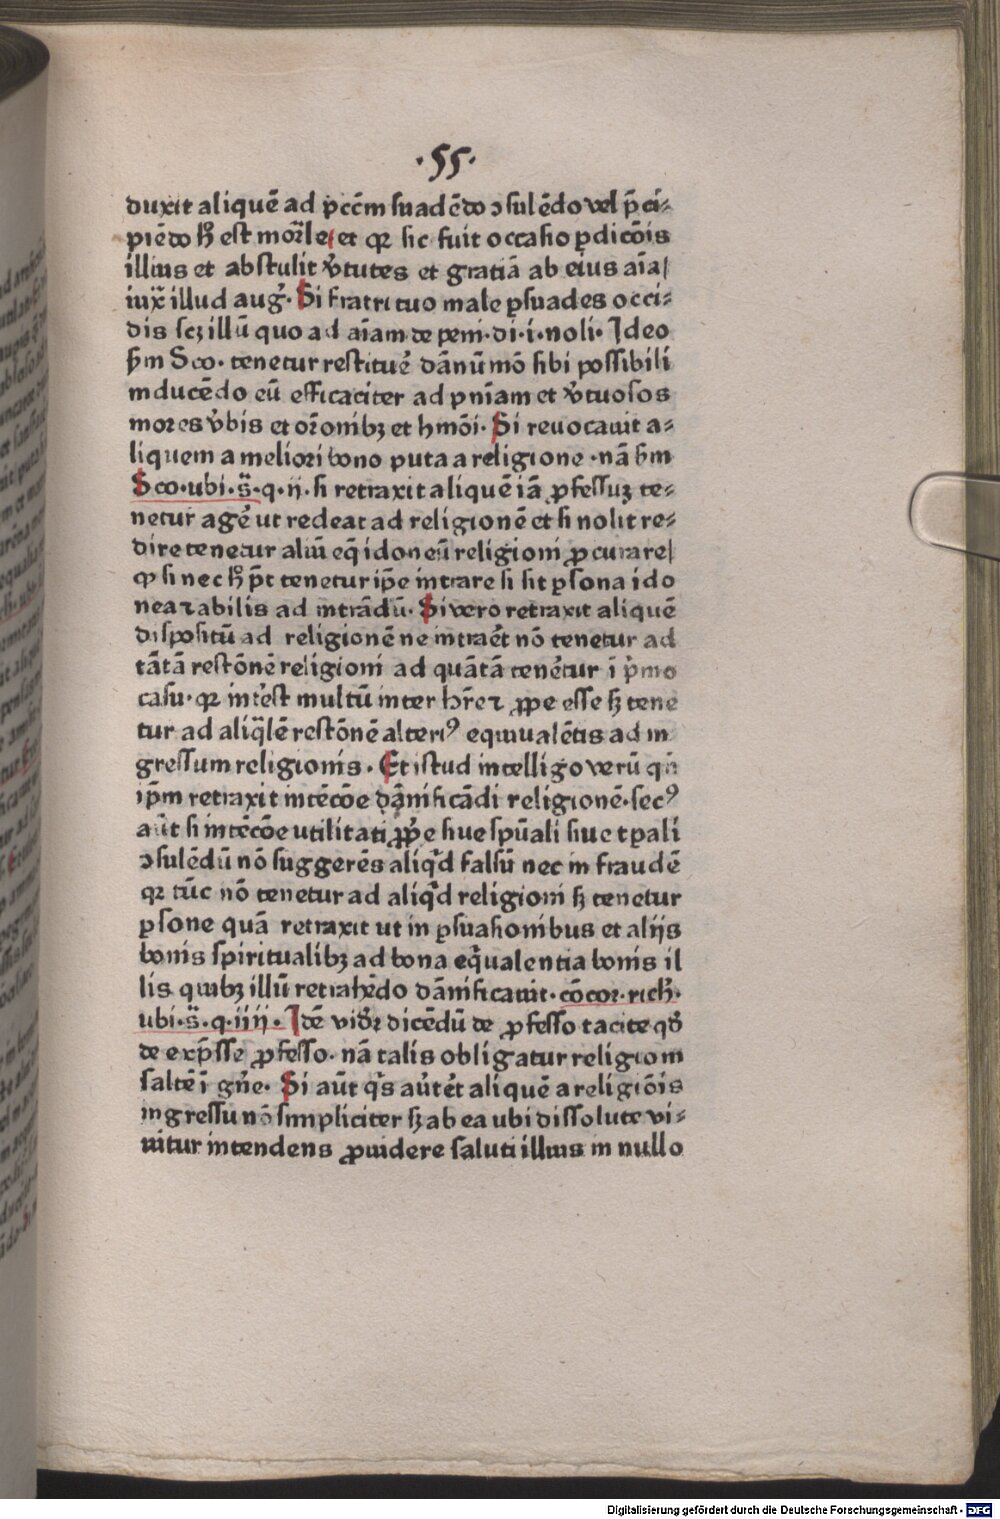 ·55·
duxit aliquē ad pccm̄ suadēdo ɔsulēdo vel p̄ci⸗
piēdo hͦ est mor̄le et qꝛ sic fuit occasio ꝑdicōis
illius et abstulit v̓tutes et gratiā ab eius aīa/
iux̄ illud aug̓. Si fratri tuo male ꝑsuades occi⸗
dis scꝫ illū quo ad aīam de peni·di·i·noli· Ideo
ẜm Sco· tenetur restituē dānū mō sibi possibili
inducēdo eū efficaciter ad pnīam et v̓tuosos
mores v̓bis et or̄onibꝫ et hmōi· Si reuocauit a⸗
liquem a meliori bono puta a religione ·nā ẜm
Sco·ubi·s̄·q·ij· si retraxit aliquē iā ꝓfessuꝫ te⸗
netur age̓ ut redeat ad religionē et si nolit re⸗
dire tenetur aliū eq̄ idoneū religioni ꝓcurare/
qꝫ si nec hͦ pt̄ tenetur ip̄e intrare si sit ꝑsona ido
nea ⁊ abilis ad intrādū· Si vero retraxit aliquē
dispositū ad religionē ne intraēt nō tenetur ad
tātā restōnē religioni ad quātā tene̓tur ī p̓mo
casu· qꝛ int̓est multū inter hr̄e ⁊ ꝓpe esse sꝫ tene
tur ad aliq̄lē restōnē alteriꝰ equiualētis ad in
gressum religionis· Et istud intelligo verū qn̄
ip̄m retraxit intēcōe dānificādi religionē·secꝰ
aūt si intēcōe utilitati ꝓpe̓ siue spūali siue tꝑali
ɔsulēdū nō suggerēs aliqd̄ falsū nec in fraudē
qꝛ tūc nō tenetur ad aliqd̄ religioni sꝫ tenetur
ꝑsone quā retraxit ut in ꝑsuasionibus et alijs
bonis spiritualibꝫ ad bona eq̄ualentia bonis il
lis quibꝫ illū retrahēdo dānificauit· cōcor·rich·
ubi·s̄·q·iiij· Idē vide̓ dicēdū de ꝓfesso tacite qd̓
de exp̄sse ꝓfesso· nā talis obligatur religioni
saltē ī gn̄e· Si aūt qs̄ aūte̓t aliquē a religiōis
ingressu nō simpliciter sꝫ ab ea ubi dissolute vi⸗
uitur intendens ꝓuidere saluti illius in nullo
Digitalisierung gefördert durch die Deutsche Forschungsgemeinschaft - DFG